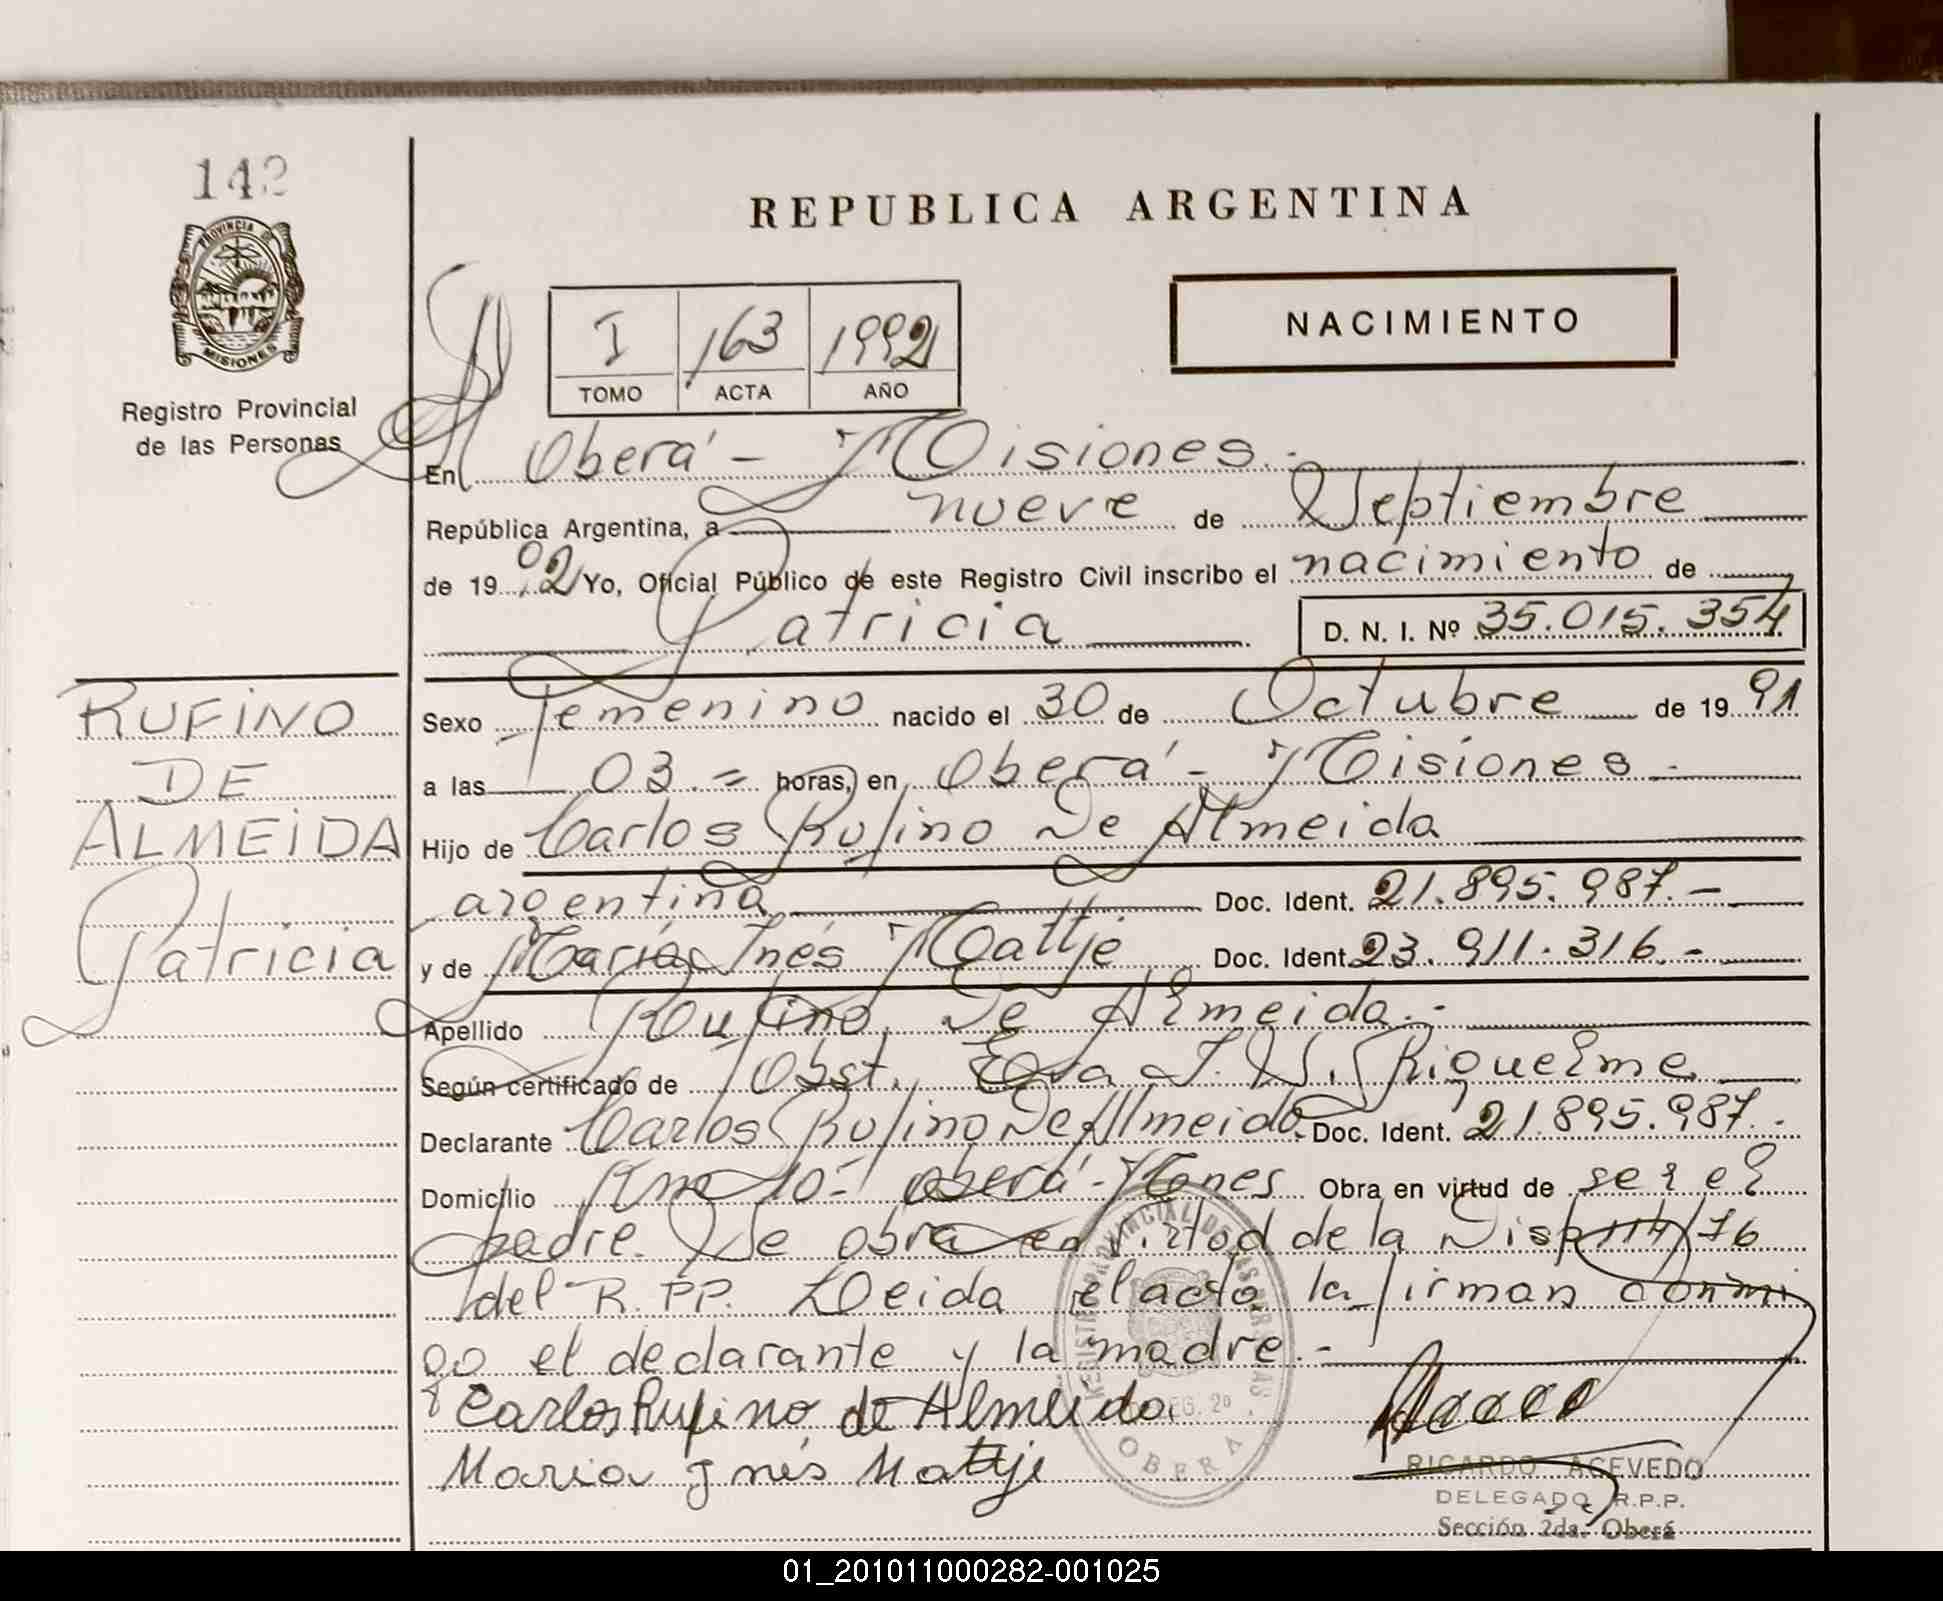 142
REPUBLICA ARGENTINA
PROVINCIA DE
MISIONES
Registro Provincial
de las Personas
I 163 1992
TOMO ACTA AÑO
NACIMIENTO
En Oberá - Misiones.-
República Argentina, a nueve de Septiembre
de 19 92 Yo, Oficial Público de este Registro Civil inscribo el nacimiento de
Patricia D. N. I. Nº 35.015.354
RUFINO
DE
ALMEIDA
Patricia
Sexo Femenino nacido el 30 de Octubre de 19 91
a las 03.= horas, en Oberá - Misiones -
Hijo de Carlos Rufino De Almeida
argentina Doc. Ident. 21.895.987.-
y de María Inés Mattje Doc. Ident. 23.911.316.-
Apellido Rufino De Almeida.-
Según certificado de Obst. Eva J. V. Riquelme
Declarante Carlos Rufino De Almeida. Doc. Ident. 21.895.987.-
Domicilio Km 10 - Oberá - Mones Obra en virtud de ser el
padre. Se obra en virtud de la Disp 114/76
del R.PP. Leida el acta la firman conmi
go el declarante y la madre.-
Carlos Rufino de Almeida
Maria Inés Mattje
REGISTRO PROVINCIAL DE LAS PERSONAS
DELEG. 2º
OBERA
RICARDO ACEVEDO
DELEGADO R.P.P.
Sección 2da. Oberá
01_201011000282-001025